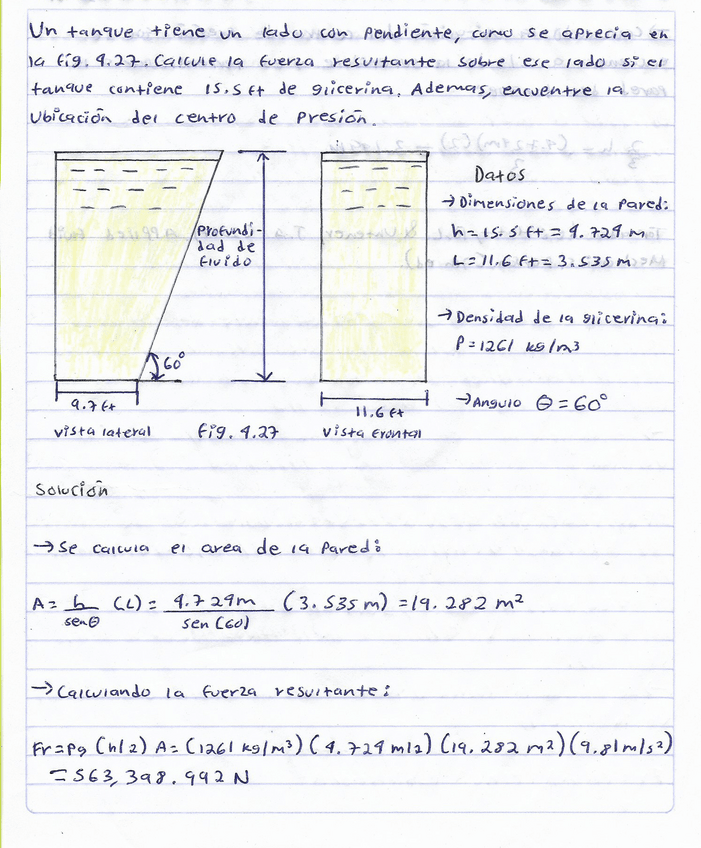 Un tanque tiene un lado con pendiente, como se aprecia en
la fig. 4.27. Calcule la fuerza resultante sobre ese lado si el
tanque contiene 15.5 ft de glicerina. Ademas, encuentre la
Ubicación del centro de Presión.
Profundi-
dad de
fluido
60°
4.7 ft
vista lateral
fig. 4.27
11.6 ft
vista frontal
Datos
→ Dimensiones de la Pared:
h = 15.5 ft = 4.724 m
L = 11.6 ft = 3.535 m
→ Densidad de la glicerina:
P = 1261 kg/m³
→ Angulo θ = 60°
Solución
→ Se calcula el area de la Pared:
A = h/senθ (L) = 4.724m/sen(60) (3.535 m) = 19.282 m²
→ Calculando la fuerza resultante:
Fr = Pg (h/2) A = (1261 kg/m³) (4.724 m/2) (19.282 m²) (9.81 m/s²)
= 563,398.992 N